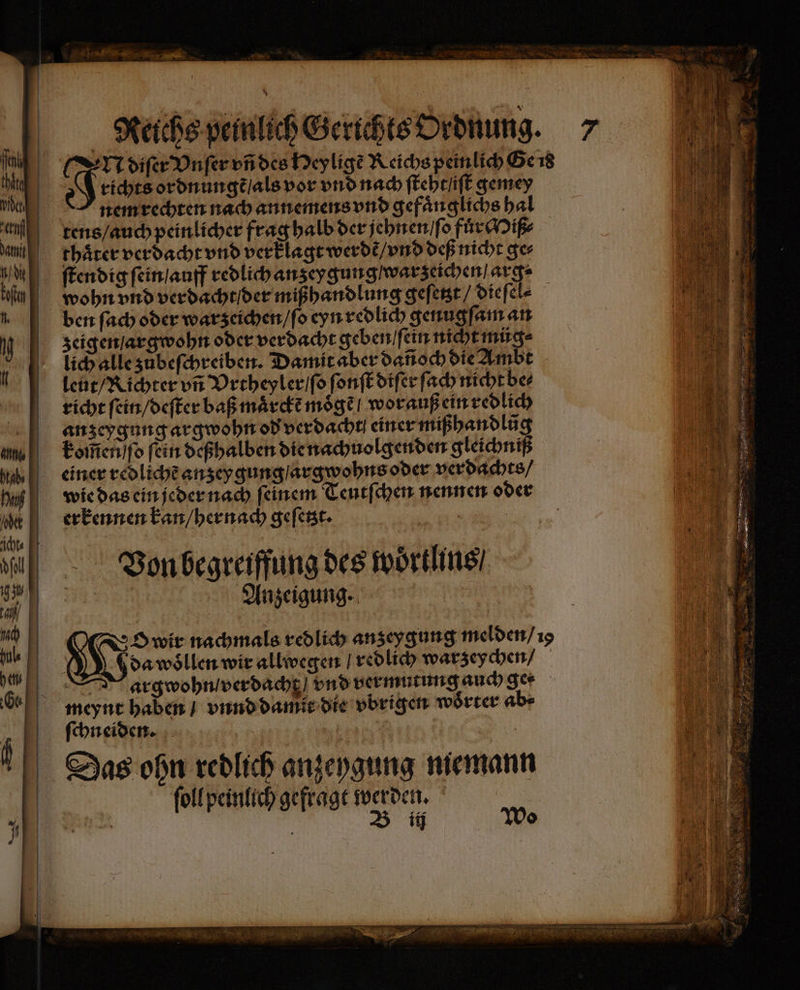 Reichs peinlich Gerichts Ordnung. 7
IN diſer Vnſer vñ des Heyligẽ Reichs peinlich Ge 18
richts ordnungẽ/als vor vnd nach ſteht/iſt gemey
nem rechten nach annemens vnd gefaͤnglichs hal
tens/auch peinlicher frag halb der jehnen/ſo fuͤr Miß⸗
thaͤter verdacht vnd verklagt werdẽ/vnd deß nicht ge⸗
ſtendig ſein/auff redlich anzeygung/warzeichen/arg⸗
wohn vnd verdacht/der mißhandlung geſetzt/dieſel⸗
ben ſach oder warzeichen/ſo eyn redlich genugſam an
zeigen/argwohn oder verdacht geben/ſein nicht muͤg⸗
lich alle zubeſchreiben. Damit aber dañoch die Ambt
leut/Richter vñ Vrtheyler/ſo ſonſt diſer ſach nicht be⸗
richt ſein/deſter baß maͤrckẽ moͤgẽ/worauß ein redlich
anzeygung argwohn od verdacht/einer mißhandlũg
kom̃en/ſo ſein deßhalben die nachuolgenden gleichniß
einer redlichẽ anzeygung/argwohns oder verdachts/
wie das ein jeder nach ſeinem Teutſchen nennen oder
erkennen kan/hernach geſetzt.
Von begreiffung des woͤrtlins/
Anzeigung.
WO wir nachmals redlich anzeygung melden/ 19
da woͤllen wir allwegen/redlich warzeychen/
argwohn/verdacht/vnd vermutung auch ge⸗
meynt haben/vnnd damit die vbrigen woͤrter ab⸗
ſchneiden.
Das ohn redlich anzeygung niemann
ſoll peinlich gefragt werden.
B iij Wo